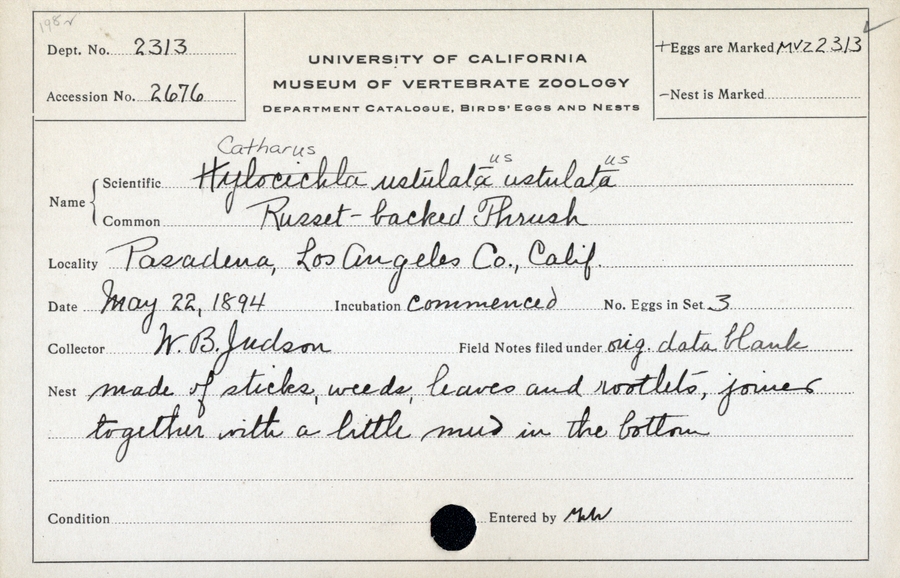 1982
Dept. No. 2313
Accession No. 2676
UNIVERSITY OF CALIFORNIA
MUSEUM OF VERTEBRATE ZOOLOGY
DEPARTMENT CATALOGUE, BIRDS' EGGS AND NESTS
+Eggs are Marked MVZ2313
–Nest is Marked
Catharus
us us
Name Scientific Hylocichla ustulata ustulata
Common Russet-backed Thrush
Locality Pasadena, Los Angeles Co., Calif.
Date May 22, 1894 Incubation commenced No. Eggs in Set 3
Collector W. B. Judson Field Notes filed under orig. data blank
Nest made of sticks, weeds, leaves and rootlets, joined
together with a little mud in the bottom
Condition Entered by